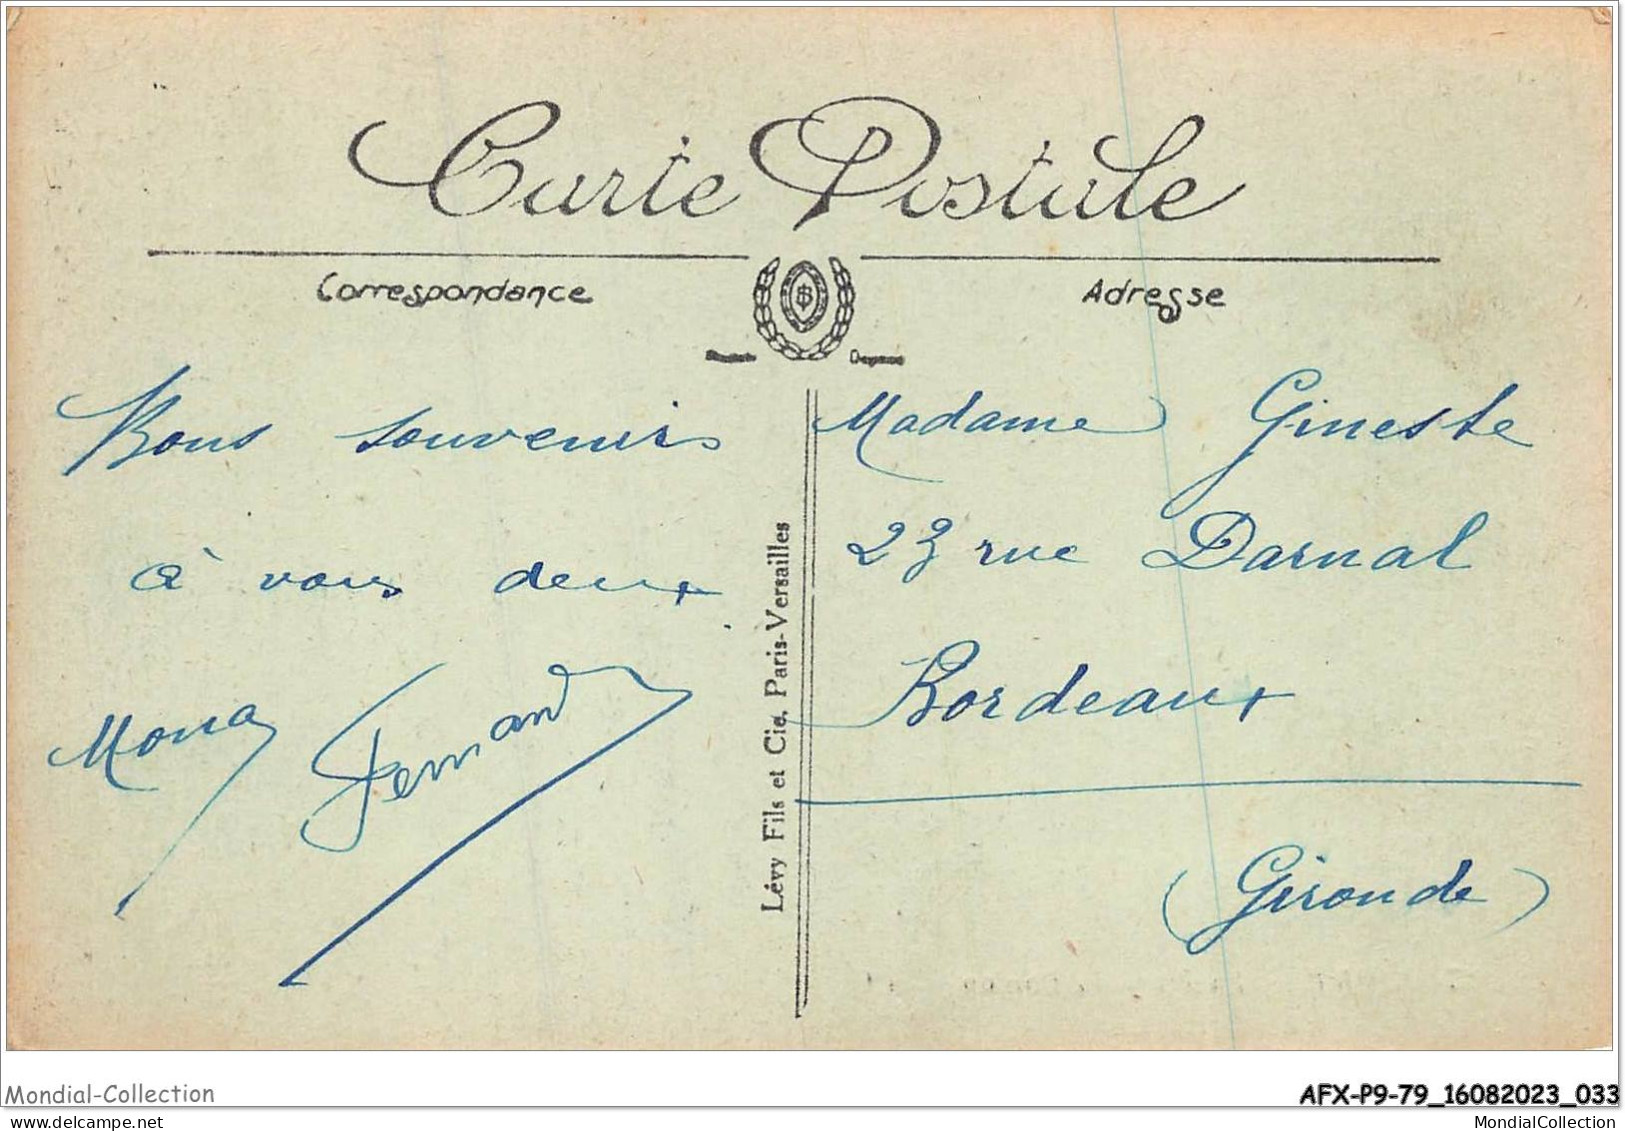 Carte Postale
Correspondance
Adresse
Bons souvenirs
à vous deux
Mona Fernand
Lévy Fils et Cie, Paris-Versailles
Madame Gineste
23 rue Darnal
Bordeaux
(Gironde)
Mondial-Collection
AFX-P9-79_16082023_033
MondialCollection
MondialCollection